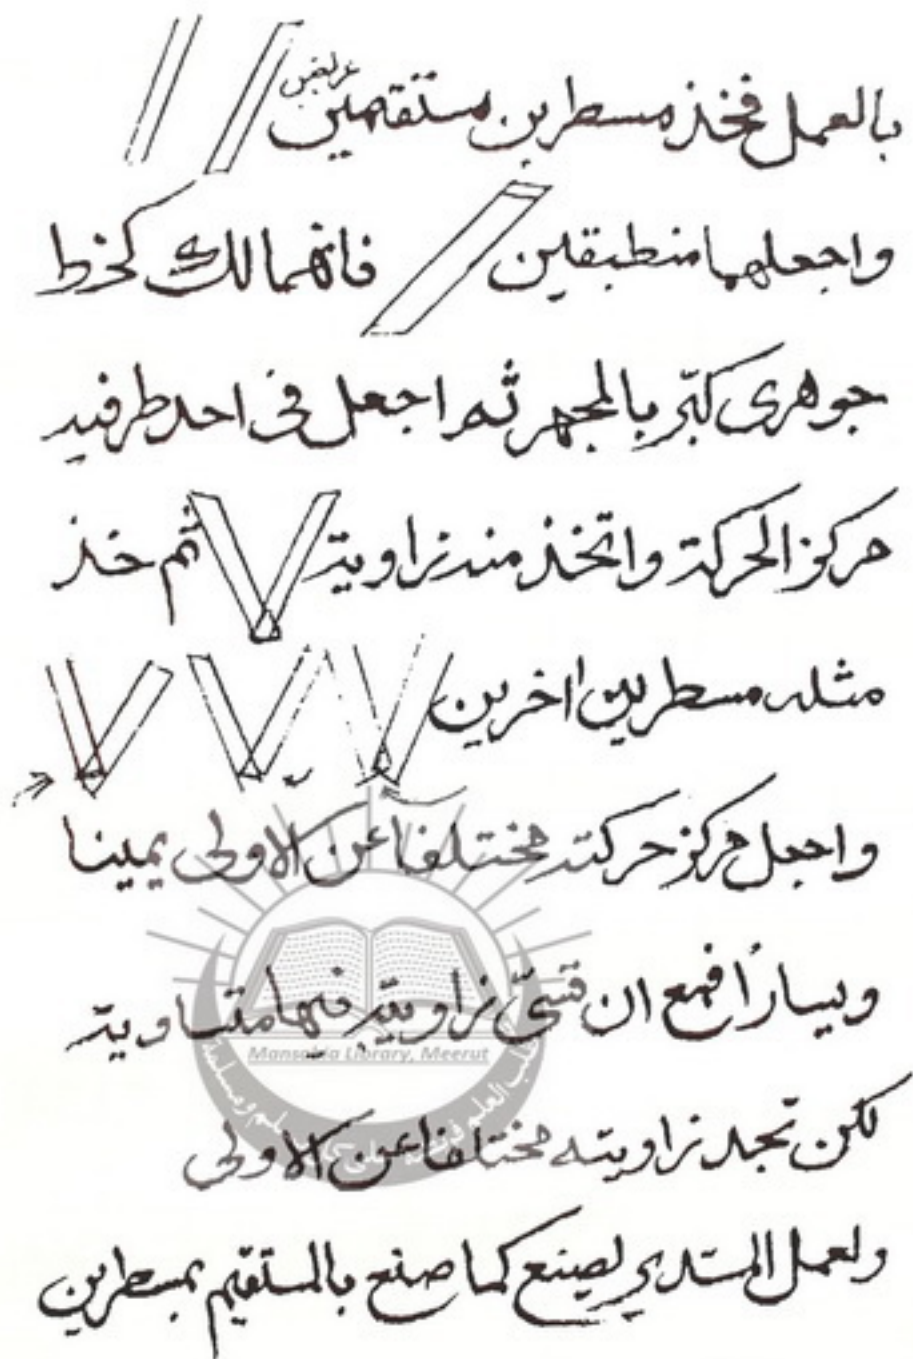 بالعمل فخذ مسطرين مستقيمين عريضين
واجعلهما منطبقين فانهما لك كخط
جوهرى كبّر بالمجهر ثم اجعل فى احد طرفيه
مركز الحركة واتخذ منه زاوية ثم خذ
مثله مسطرين اخرين
واجعل مركز حركته مختلفا عن الاولى يمينا
ويسارًا فمع ان قسىّ زاويته فيها متساوية
Mansabia Library, Meerut
لكن تجد زاويته مختلفا عن الاولى
ولعمل المستدير ليصنع كما صنع بالمستقيم بمسطرين